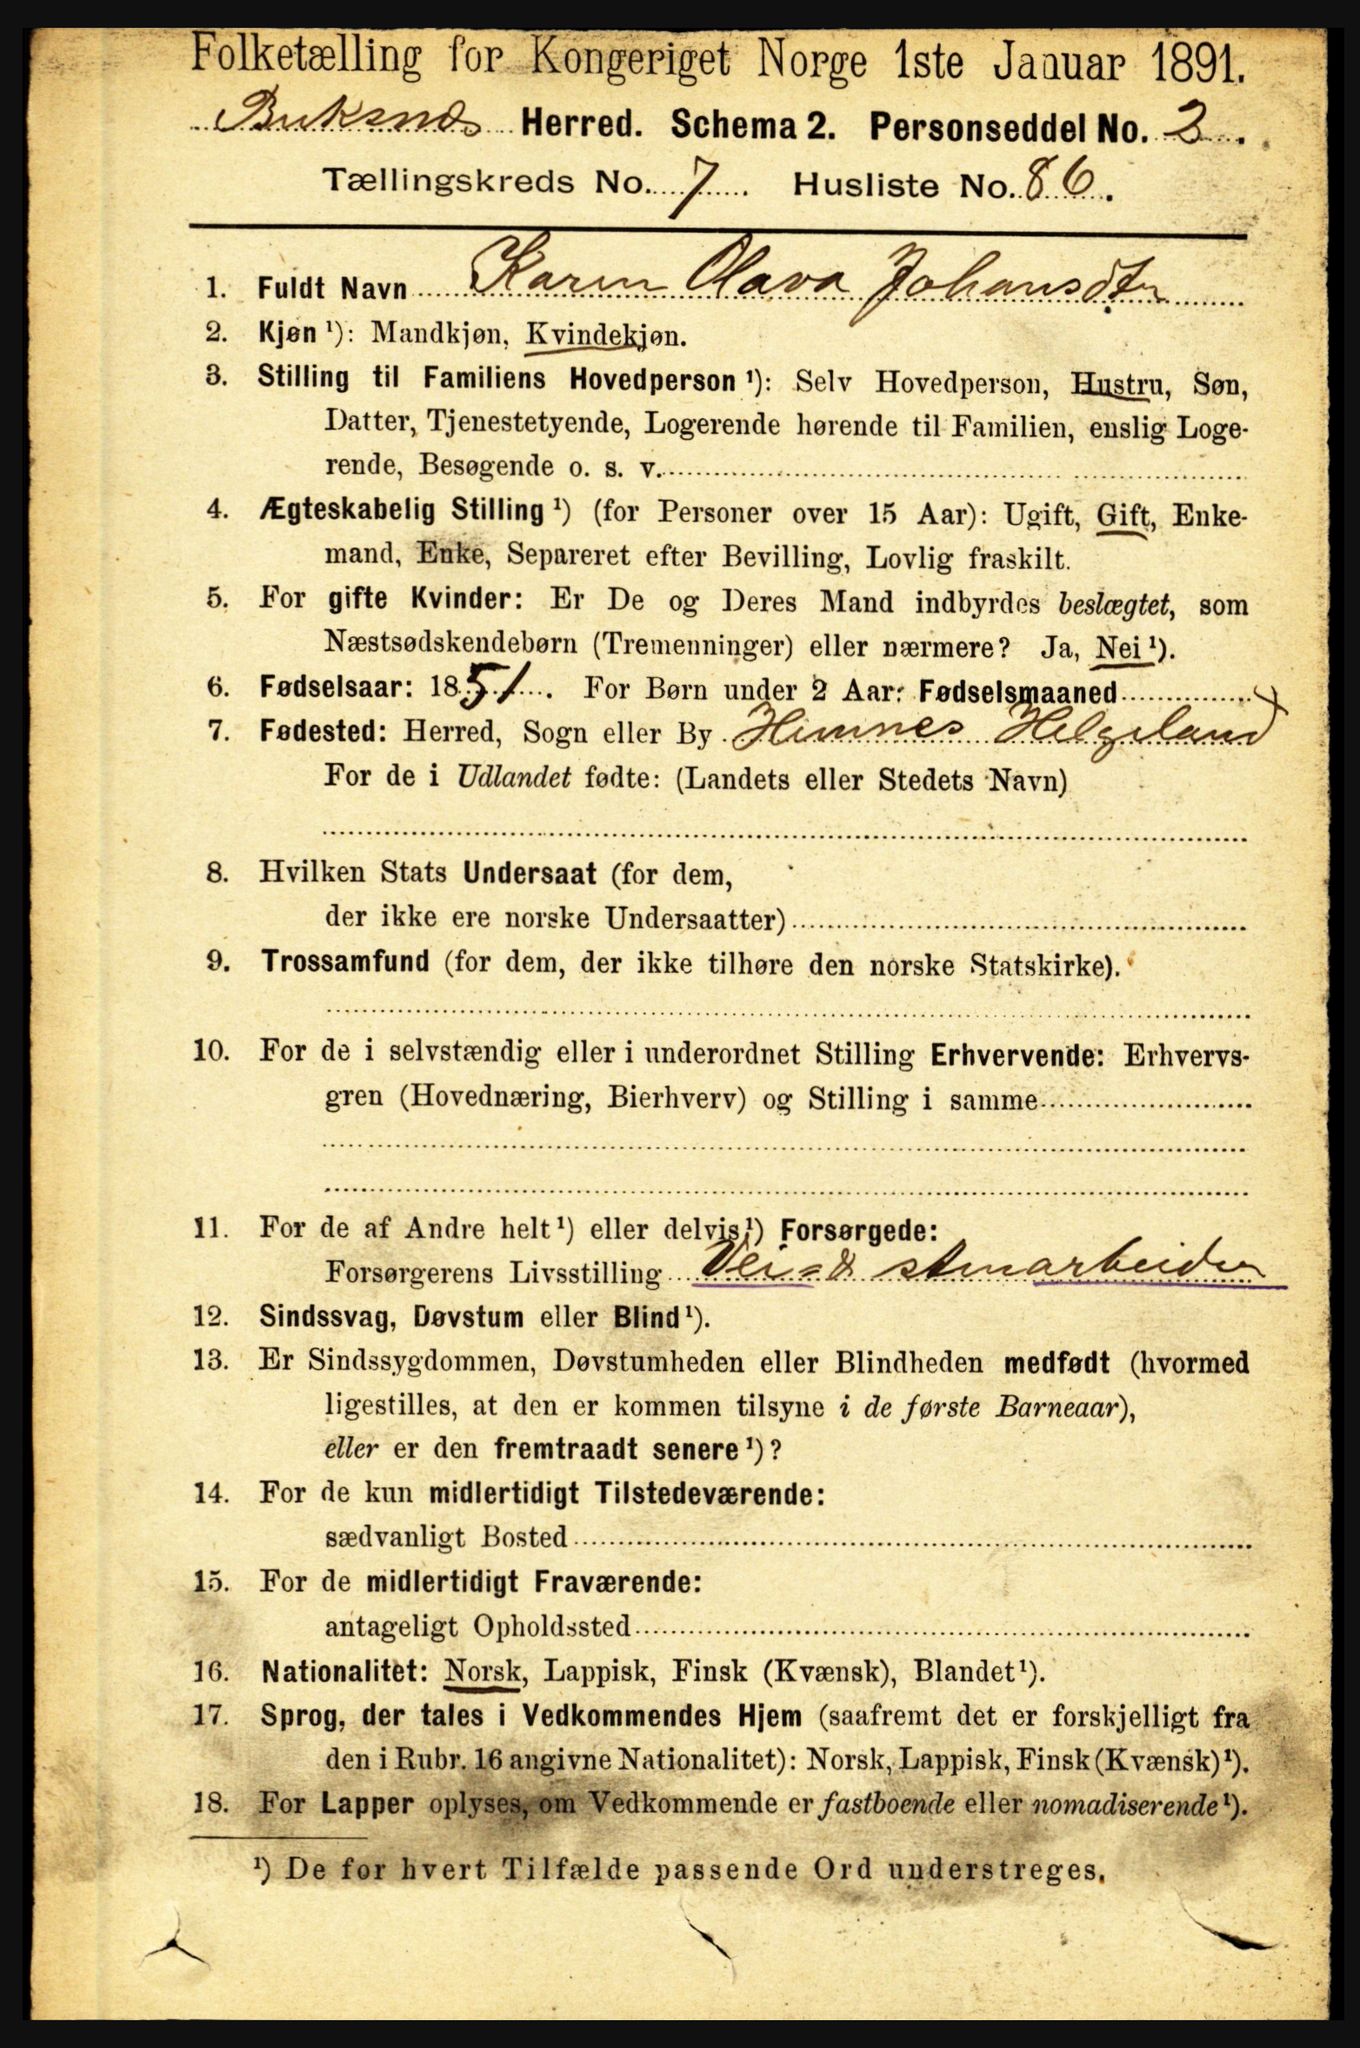 Folketælling for Kongeriget Norge 1ste Januar 1891.
Buksnes Herred. Schema 2. Personseddel No. 2.
Tællingskreds No. 7. Husliste No. 86.
1. Fuldt Navn Karen Olava Johansdtr
2. Kjøn ¹): Mandkjøn, Kvindekjøn.
3. Stilling til Familiens Hovedperson ¹): Selv Hovedperson, Hustru, Søn,
Datter, Tjenestetyende, Logerende hørende til Familien, enslig Loge-
rende, Besøgende o. s. v.
4. Ægteskabelig Stilling ¹) (for Personer over 15 Aar): Ugift, Gift, Enke-
mand, Enke, Separeret efter Bevilling, Lovlig fraskilt.
5. For gifte Kvinder: Er De og Deres Mand indbyrdes beslægtet, som
Næstsødskendebørn (Tremenninger) eller nærmere? Ja, Nei ¹).
6. Fødselsaar: 1851. For Børn under 2 Aar: Fødselsmaaned
7. Fødested: Herred, Sogn eller By Hemnes Helgeland
For de i Udlandet fødte: (Landets eller Stedets Navn)
8. Hvilken Stats Undersaat (for dem,
der ikke ere norske Undersaatter)
9. Trossamfund (for dem, der ikke tilhøre den norske Statskirke).
10. For de i selvstændig eller i underordnet Stilling Erhvervende: Erhvervs-
gren (Hovednæring, Bierhverv) og Stilling i samme
11. For de af Andre helt ¹) eller delvis ¹) Forsørgede:
Forsørgerens Livsstilling Vei= & stenarbeider
12. Sindssvag, Døvstum eller Blind ¹).
13. Er Sindssygdommen, Døvstumheden eller Blindheden medfødt (hvormed
ligestilles, at den er kommen tilsyne i de første Barneaar),
eller er den fremtraadt senere ¹)?
14. For de kun midlertidigt Tilstedeværende:
sædvanligt Bosted
15. For de midlertidigt Fraværende:
antageligt Opholdssted
16. Nationalitet: Norsk, Lappisk, Finsk (Kvænsk), Blandet ¹).
17. Sprog, der tales i Vedkommendes Hjem (saafremt det er forskjelligt fra
den i Rubr. 16 angivne Nationalitet): Norsk, Lappisk, Finsk (Kvænsk) ¹).
18. For Lapper oplyses, om Vedkommende er fastboende eller nomadiserende ¹).
¹) De for hvert Tilfælde passende Ord understreges.